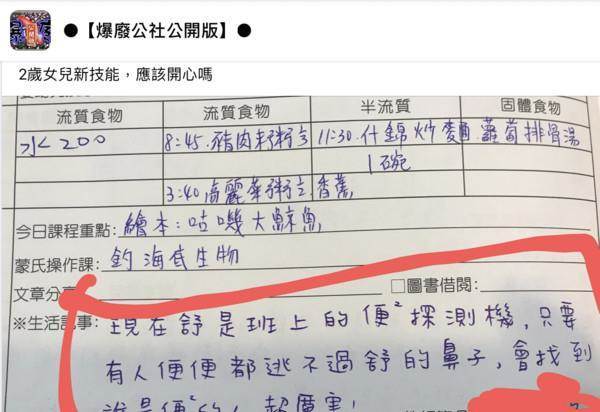 ●【爆廢公社公開版】●
2歲女兒新技能，應該開心嗎
流質食物 流質食物 半流質 固體食物
水<200 8:45.豬肉粥 11:30.什錦炒麵 蘿蔔排骨湯
1碗
3:40高麗菜粥 香蕉
今日課程重點：繪本：咕嘰大鯨魚
蒙氏操作課：釣海底生物
文章分 □圖書借閱：
※生活記事：現在舒是班上的便²探測機，只要
有人便便都逃不過舒的鼻子，會找到
誰是便²的人 超厲害!